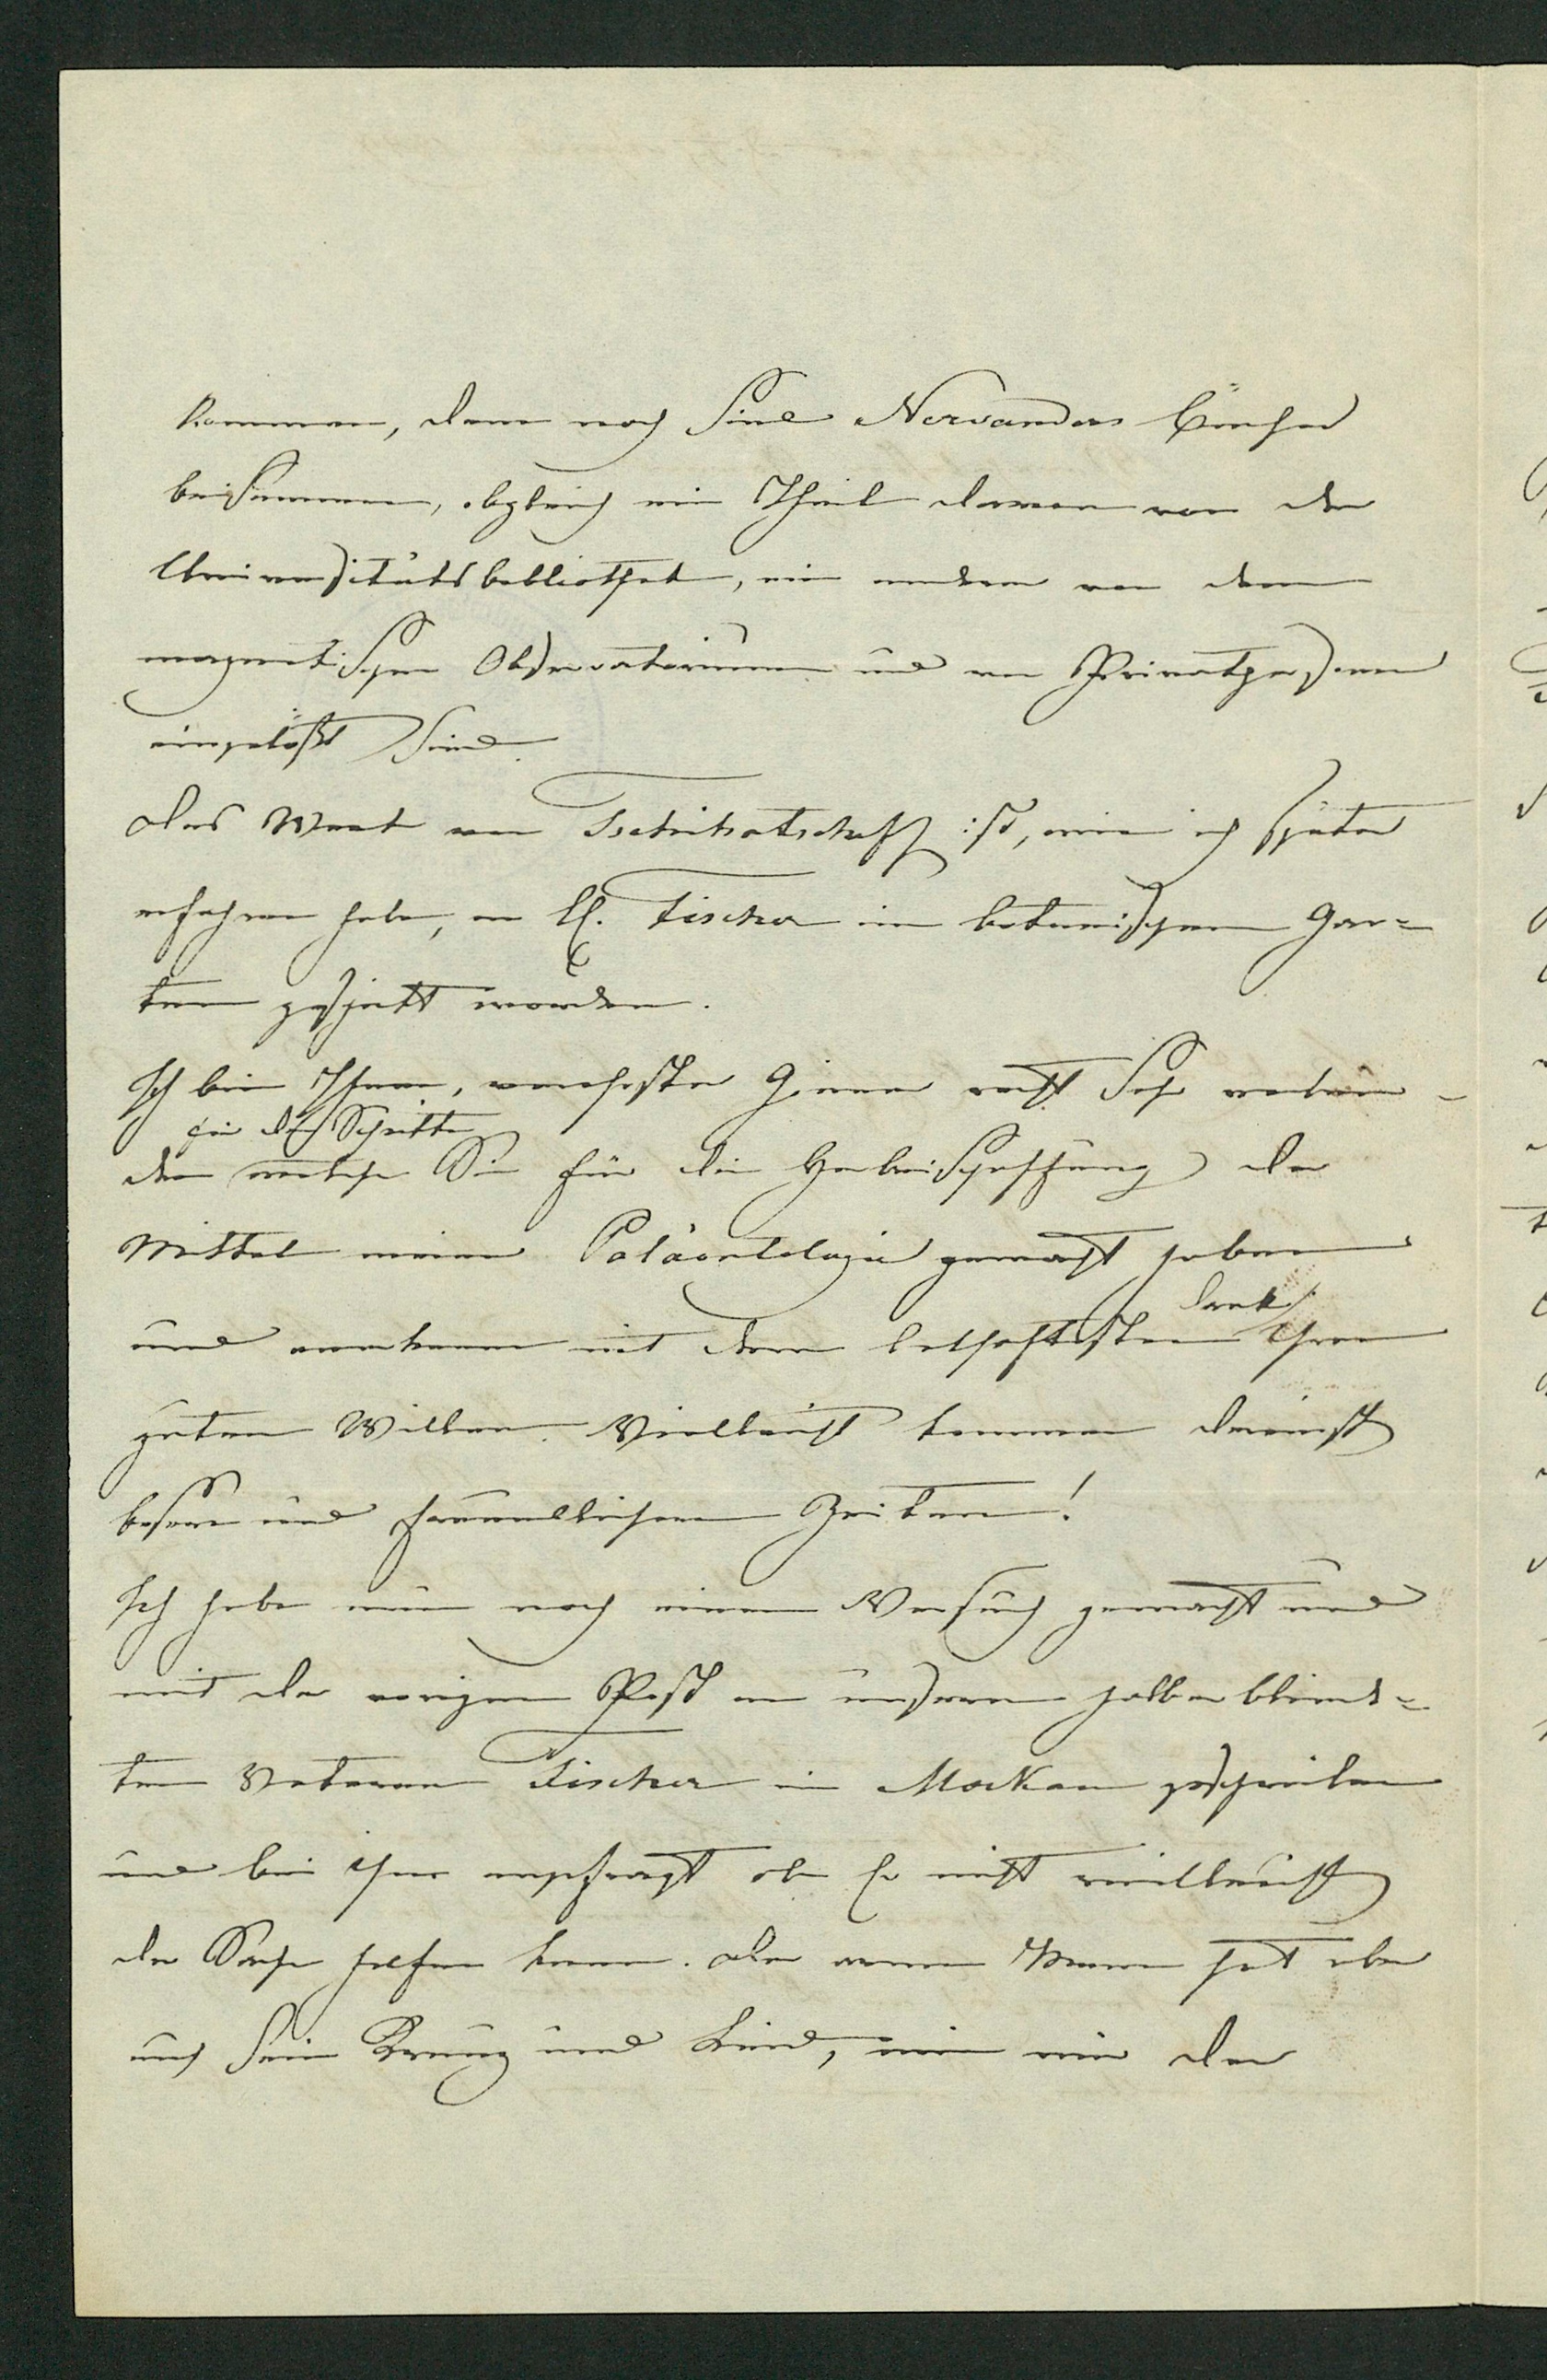 kommen, denn noch sind Nervanders Bücher
beisammen, obgleich ein Theil davon von der
Universitätsbibliothek, ein anderer von dem
magnetischen Observatorium und von Privatpersonen
eingelößt sind.
Das Werk von Tschihatscheff ist, wie ich später
erfahren habe, an E. Fischer im botanischen Gar=
ten geschickt worden.
Ich bin Ihnen, verehrtester Gönner recht sehr verbun-
für die Schritte
den welche Sie für die Herbeischaffung der
Mittel meiner Paläontologie gemacht haben
Dank
und erkenne mit dem lebhaftesten Ihren
guten Willen. Vielleicht kommen dereinst
bessere und freundlichere Zeiten!
Ich habe nun noch einen Versuch gemacht und
mit der vorigen Post an unseren halberblinde=
ten Veteran Fischer in Moskau geschrieben
und bei ihm angefragt ob Er nicht vielleicht
der Sache helfen kann. Der arme Mann hat aber
auch sein Kreuz und Leid, wie mir der